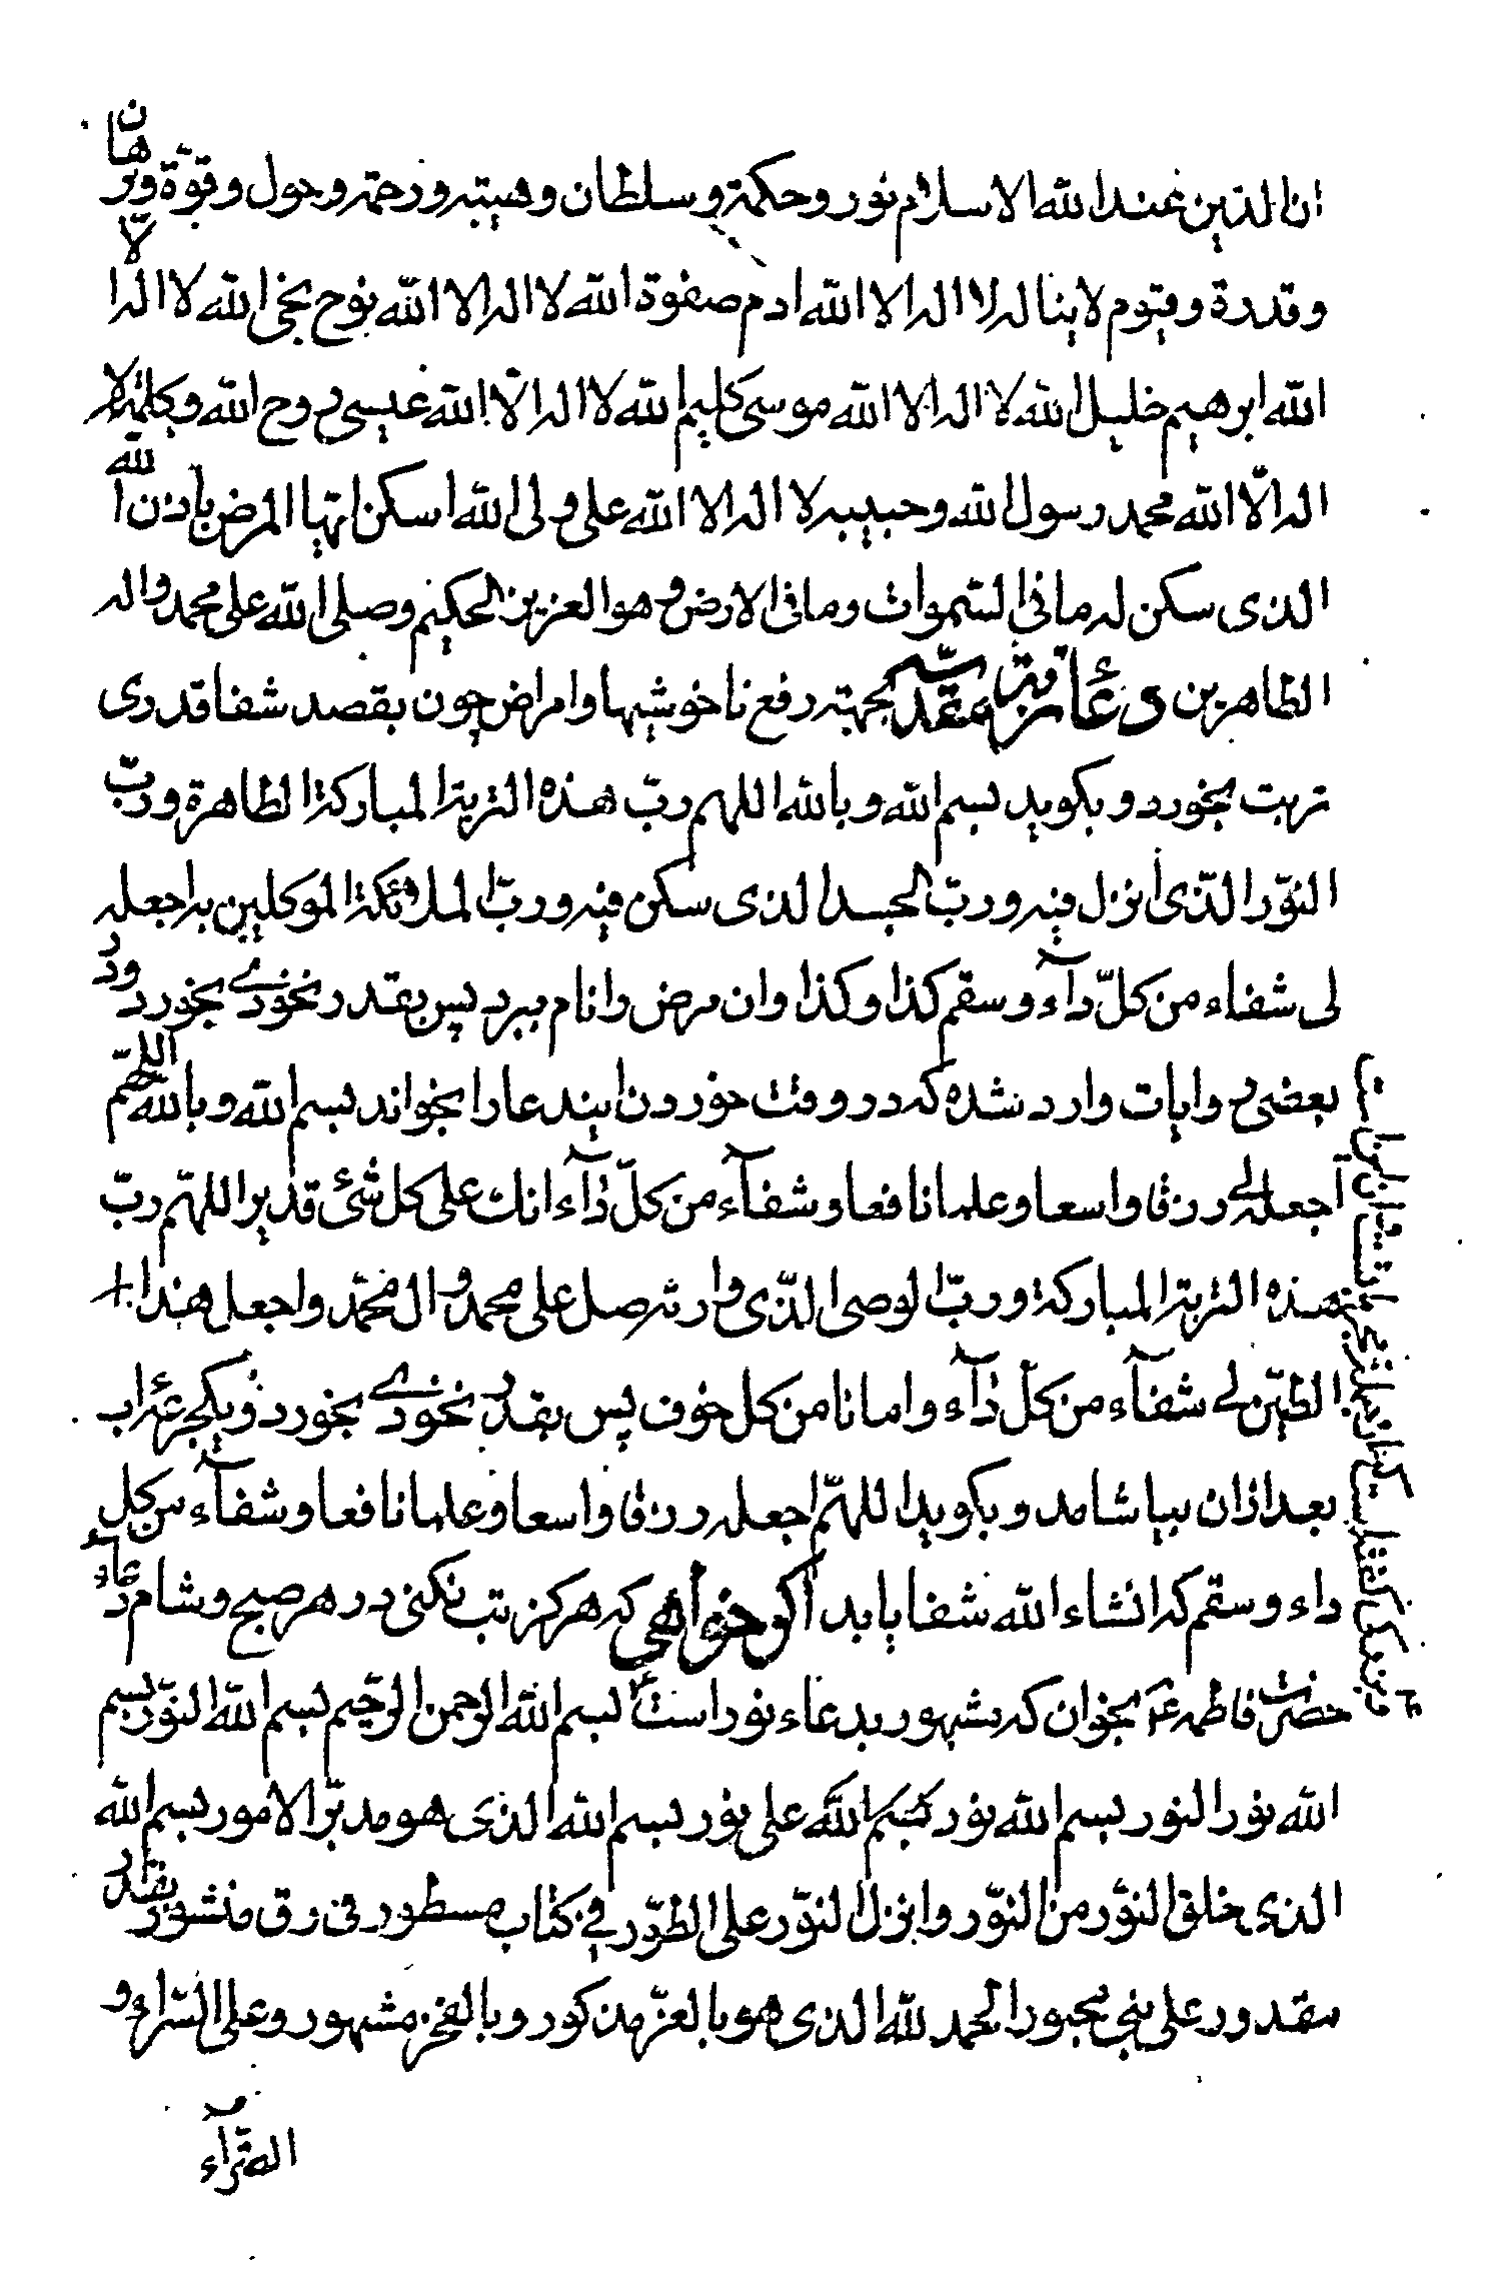 ان الدین عند الله الاسلام نور و حکمة و سلطان و هیبته و رحمة و حول و قوّة و برهان
و قدرة و قیوم لاینا له لا اله الا الله ادم صفوة الله لا اله الا الله نوح نجی الله لا اله الّا
الله ابرهیم خلیل الله لا اله الا الله موسی کلیم الله لا اله الّا الله عیسی روح الله و کلمته لا
اله الّا الله محمد رسول الله و حبیبه لا اله الا الله علی ولی الله اسکن ایّها المرض باذن الله
الذی سکن له ما فی السّموات و ما فی الارض و هو العزیز الحکیم و صلی الله علی محمد و اله
الطاهرین دعاء تربة مقدّسه بجهته رفع ناخوشیها و امراض چون بقصد شفا قدری
تربت بخورد و بکوید بسم الله و بالله اللهم ربّ هذه التربة المبارکة الطاهرة و ربّ
النوّر الذّی انزل فیه و ربّ الجسد الذی سکن فیه و ربّ الملائکة الموکلین به اجعله
لی شفاء من کلّ دآء و سقم کذا و کذا و ان مرض را نام ببرد پس بقدر نخودی بخورد و در
بعضی روایات وارد شده که در وقت خوردن ایندعا را بخواند بسم الله و بالله اللهمّ
اجعله لی رزقا واسعا و علما نافعا و شفآء من کلّ دآء انك علی کل شئ قدیر اللهمّ ربّ
هذه التربة المبارکة و ربّ الوصی الذّی وارثه صل علی محمد و ال محمّد و اجعل هذا
الطیّن لی شفآء من کلّ دآء و امانا من کل خوف پس بقدر نخودی بخورد و یکجرعه اب
بعد ازان بیاشامد و بکوید اللهمّ اجعله رزقا واسعا و علما نافعا و شفآء من کل
داء و سقم که انشاء الله شفا یابد اکر خواهی که هرکز تب نکنی در هر صبح و شام دعاء
حضرت فاطمه ع بخوان که مشهور بدعاء نور است بسم الله الرحمن الرحیم بسم الله النوّر بسم
الله نور النور بسم الله نور بسم الله علی نور بسم الله الذی هو مدبّر الامور بسم الله
الذی خلق النوّر من النوّر و انزل النوّر علی الطوّر فی کتاب مسطور فی رق منشور بقدر
مقدور علی نبی محبور الحمد لله الذی هو بالعزّ مذکور و بالفخر مشهور و علی السّراء و
الضرّآء